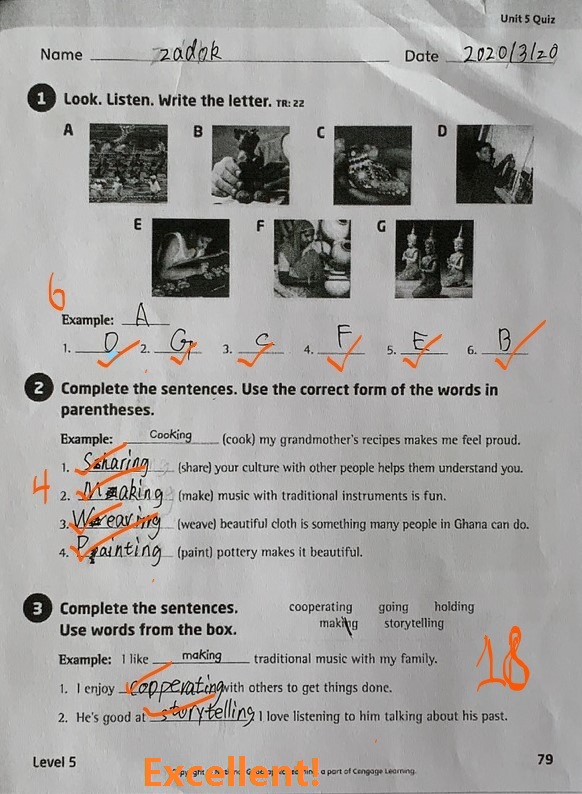 Unit 5 Quiz
Name zadok Date 2020/3/20
1 Look. Listen. Write the letter. TR: 22
A B C D
E F G
6
Example: A
1. D 2. G 3. C 4. F 5. E 6. B
2 Complete the sentences. Use the correct form of the words in
parentheses.
Example: Cooking (cook) my grandmother's recipes makes me feel proud.
1. Sharing (share) your culture with other people helps them understand you.
4
2. Making (make) music with traditional instruments is fun.
3. Weaving (weave) beautiful cloth is something many people in Ghana can do.
4. Painting (paint) pottery makes it beautiful.
3 Complete the sentences.
Use words from the box.
cooperating going holding
making storytelling
Example: I like making traditional music with my family.
18
1. I enjoy cooperating with others to get things done.
2. He's good at storytelling I love listening to him talking about his past.
Level 5
79
Excellent!
a part of Cengage Learning.